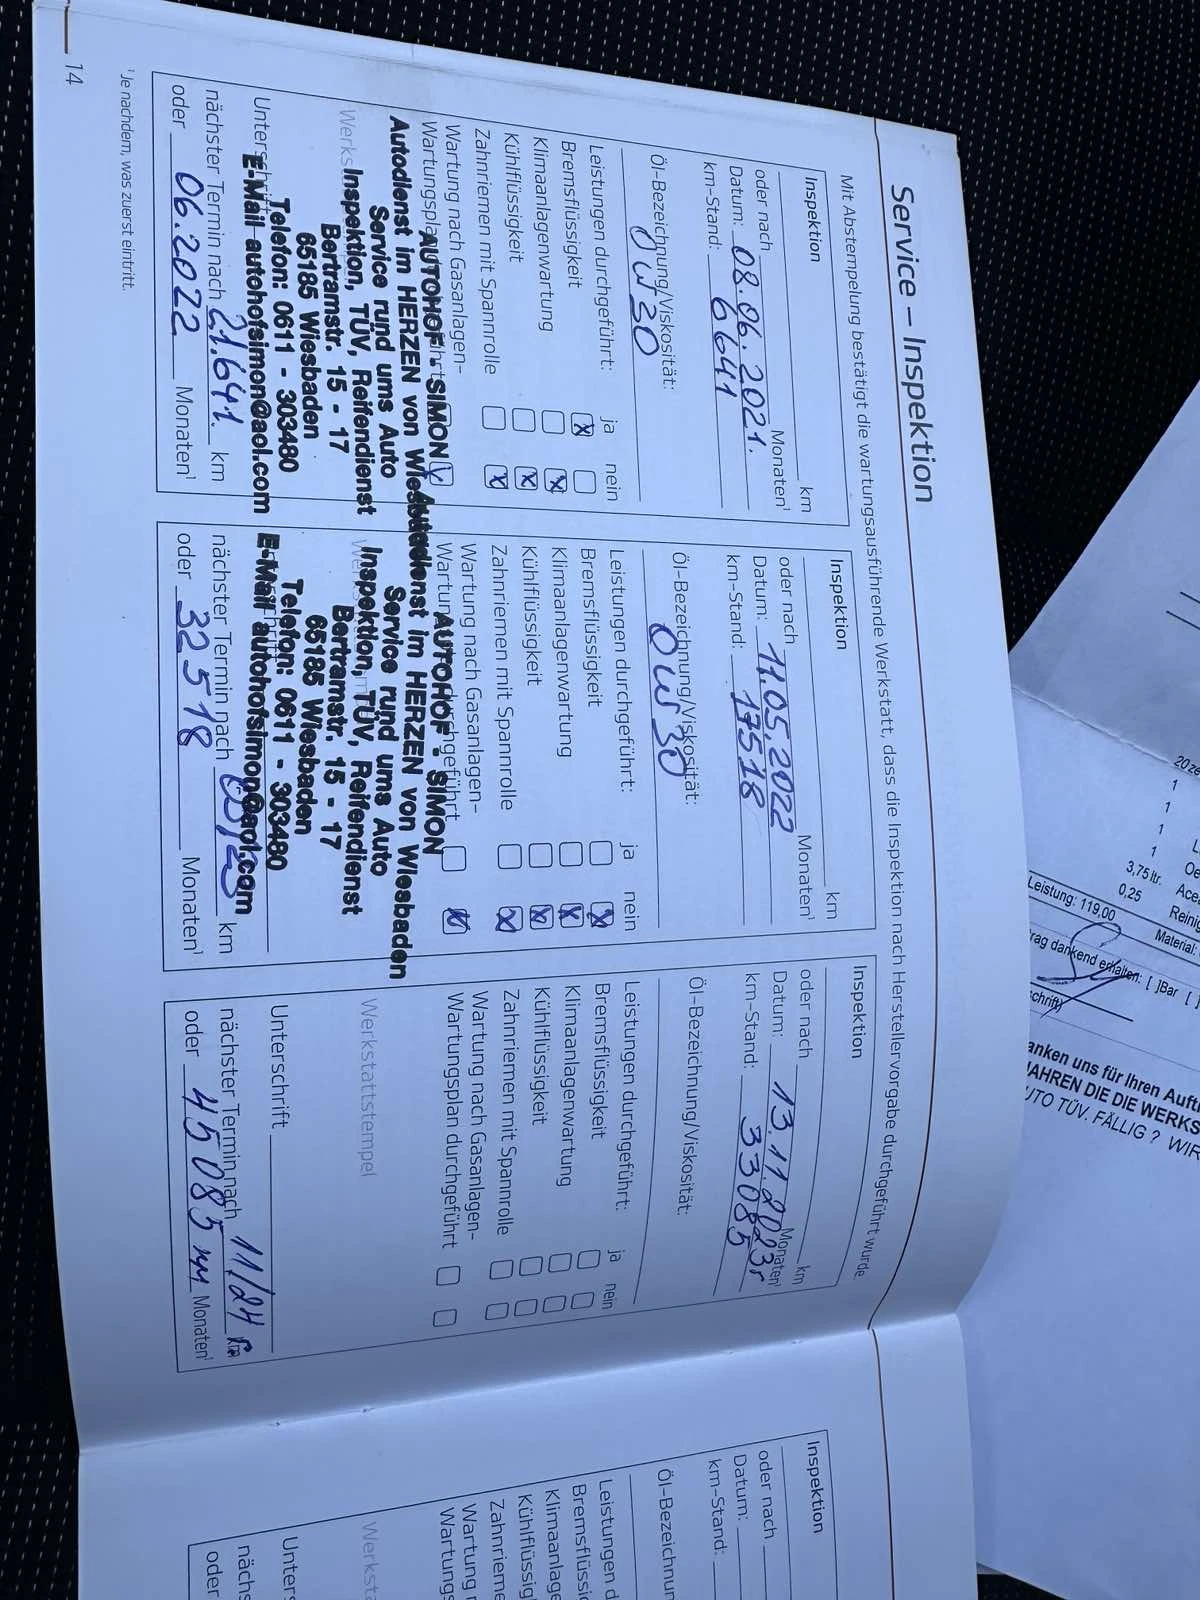 Service – Inspektion
Mit Abstempelung bestätigt die wartungsausführende Werkstatt, dass die Inspektion nach Herstellervorgabe durchgeführt wurde
Inspektion
km
oder nach Monaten¹
Datum: 08.06.2021.
km-Stand: 6641
Öl-Bezeichnung/Viskosität:
0W30
Leistungen durchgeführt: ja nein
Bremsflüssigkeit
Klimaanlagenwartung
Kühlflüssigkeit
Zahnriemen mit Spannrolle
Wartung nach Gasanlagen-
AUTOHOF · SIMON
Autodienst im HERZEN von
Service rund ums Auto
Inspektion, TÜV, Reifendienst
Bertramstr. 15 - 17
65185 Wiesbaden
Telefon: 0611 - 303480
E-Mail autohofsimon@aol.com
nächster Termin nach 21.641. km
oder 06.2022 Monaten¹
Inspektion
km
oder nach Monaten¹
Datum: 11.05.2022
km-Stand: 17518
Öl-Bezeichnung/Viskosität:
0W30
Leistungen durchgeführt: ja nein
Bremsflüssigkeit
Klimaanlagenwartung
Kühlflüssigkeit
Zahnriemen mit Spannrolle
Wartung nach Gasanlagen-
AUTOHOF · SIMON
Autodienst im HERZEN von Wiesbaden
Service rund ums Auto
Inspektion, TÜV, Reifendienst
Bertramstr. 15 - 17
65185 Wiesbaden
Telefon: 0611 - 303480
E-Mail autohofsimon@aol.com
nächster Termin nach km
oder 32518 Monaten¹
Inspektion
km
oder nach Monaten¹
Datum: 13.11.2023r
km-Stand: 33085
Öl-Bezeichnung/Viskosität:
Leistungen durchgeführt: ja nein
Bremsflüssigkeit
Klimaanlagenwartung
Kühlflüssigkeit
Zahnriemen mit Spannrolle
Wartung nach Gasanlagen-
Wartungsplan durchgeführt
Werkstattstempel
Unterschrift
nächster Termin nach 11/24 km
oder 45085 Monaten¹
¹ Je nachdem, was zuerst eintritt.
14
Inspektion
oder nach
Datum:
km-Stand:
Öl-Bezeichnun
Leistungen d
Bremsflüssig
Klimaanlage
Kühlflüssig
Zahnrieme
Wartung
Wartungs
Werksta
Unters
nächs
oder
1
1
1
1
3,75 ltr.
0,25 Reinig
Leistung: 119,00 Material:
rag dankend erhalten: [ ]Bar [
schrift)
anken uns für Ihren Auft
JAHREN DIE DIE WERKS
UTO TÜV. FÄLLIG ? WIR